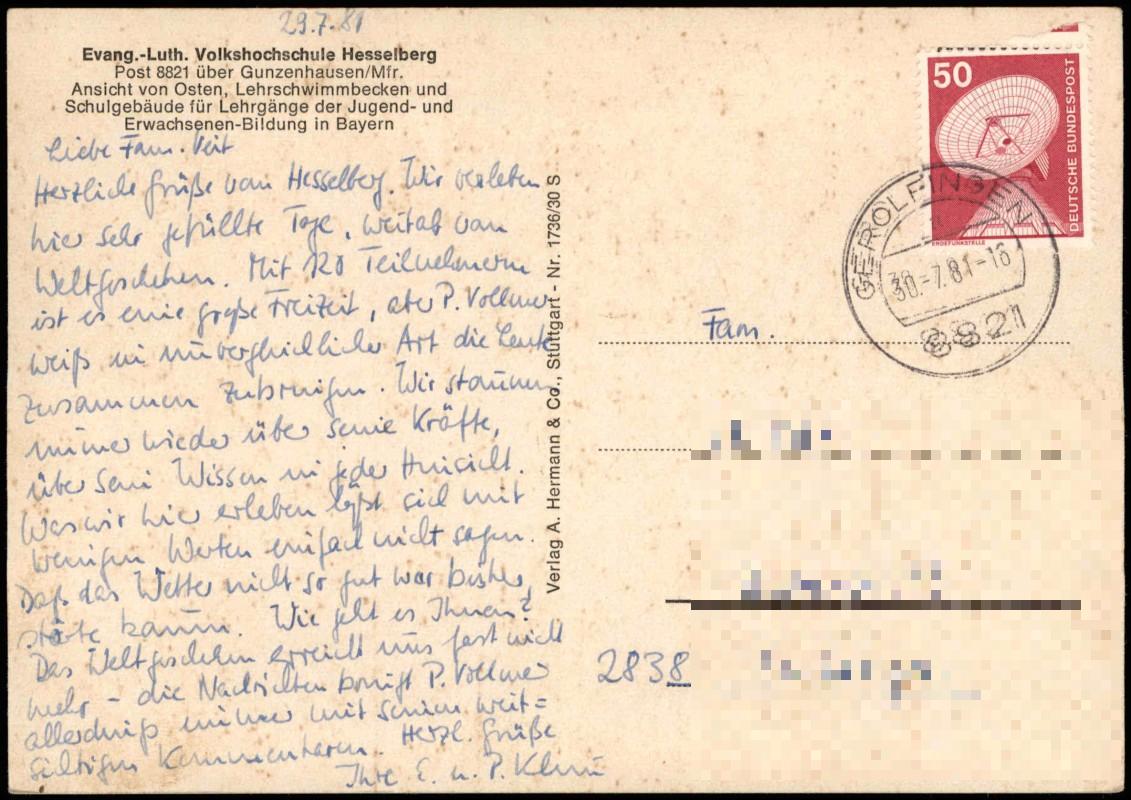 29.7.81
Evang.-Luth. Volkshochschule Hesselberg
Post 8821 über Gunzenhausen/Mfr.
Ansicht von Osten, Lehrschwimmbecken und
Schulgebäude für Lehrgänge der Jugend- und
Erwachsenen-Bildung in Bayern
Liebe Fam. Veit
Herzliche Grüße vom Hesselberg. Wir verleben
hier sehr gefüllte Tage, weitab vom
Weltgeschehen. Mit 120 Teilnehmern
ist es eine große Freizeit, aber P. Vollmer
weiß in unvergleichlicher Art die Leute
zusammen zubringen. Wir staunen
immer wieder über seine Kräfte,
über sein Wissen in jeder Hinsicht.
Was wir hier erleben läßt sich mit
wenigen Worten einfach nicht sagen.
Daß das Wetter nicht so gut war bisher,
störte kaum. Wie geht es Ihnen?
Das Weltgeschehen erreicht uns fast nicht
mehr – die Nachrichten bringt P. Vollmer
allerdings immer mit seinen weit=
sichtigen Kommentaren. Herzl. Grüße
Ihre E. u. P.
Verlag A. Hermann & Co., Stuttgart - Nr. 1736/30 S
50
DEUTSCHE BUNDESPOST
ERDEFUNKSTELLE
GEROLFINGEN
30.-7.81-16
8821
Fam.
2838